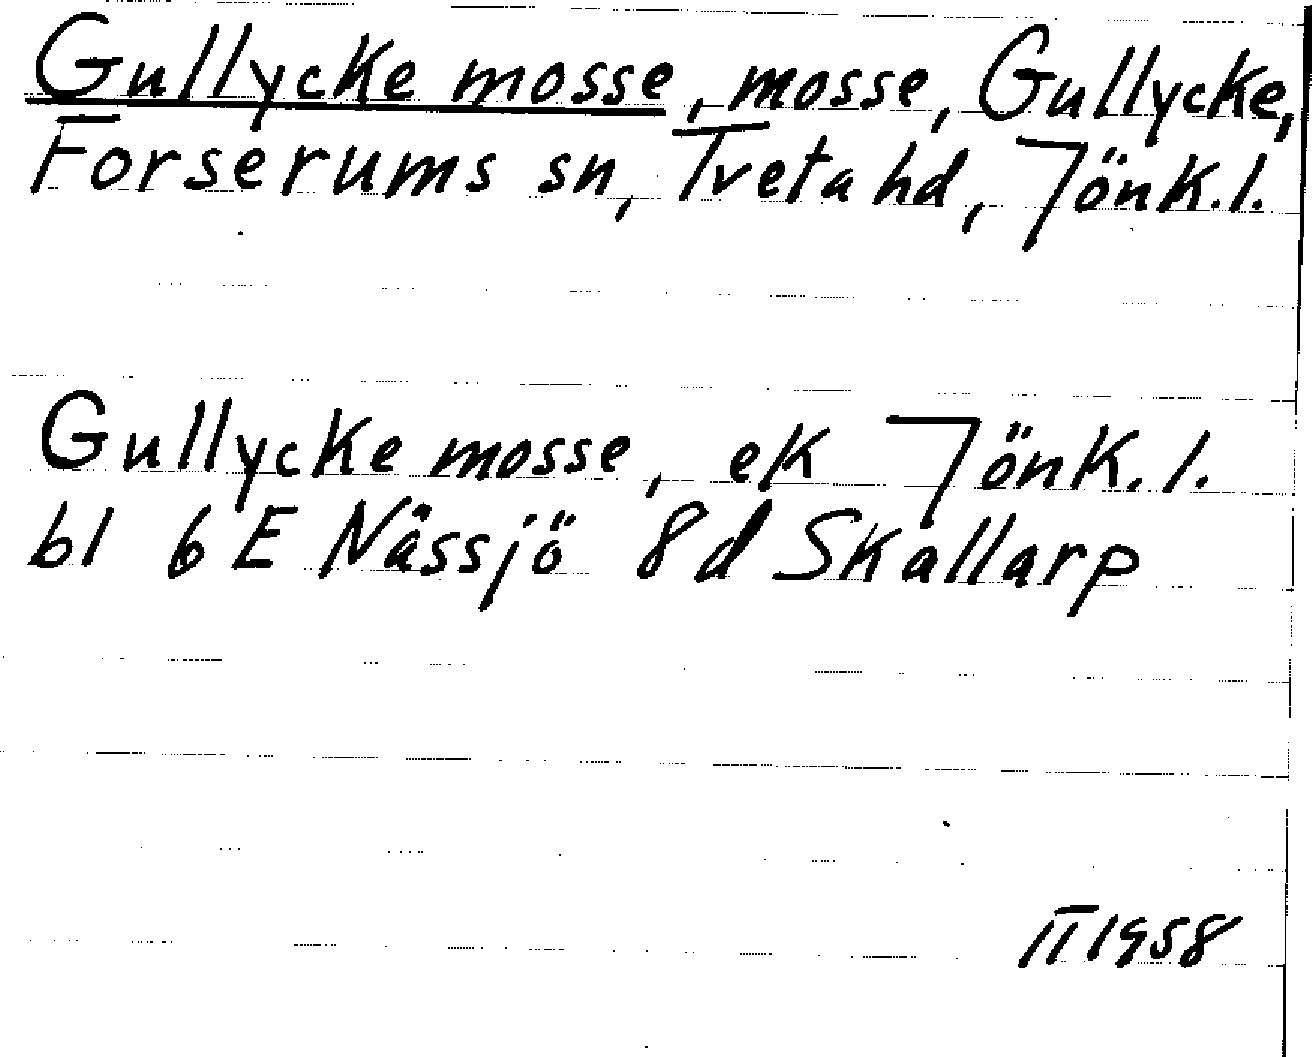 Gullycke mosse, mosse, Gullycke,
Forserums sn, Tveta hd, Jönk.l.
Gullycke mosse, ek Jönk.l.
bl 6E Nässjö 8d Skallarp
II 1958